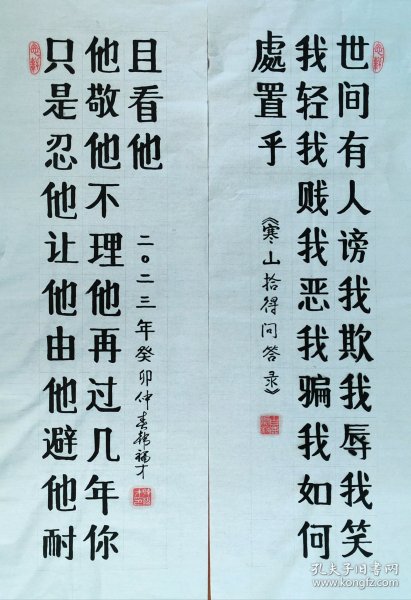 世间有人谤我欺我辱我笑
我轻我贱我恶我骗我如何
處置乎
《寒山拾得问答录》
只是忍他让他由他避他耐
他敬他不理他再过几年你
且看他
二〇二三年癸卯仲春
孔夫子旧书网
www.kongfz.com